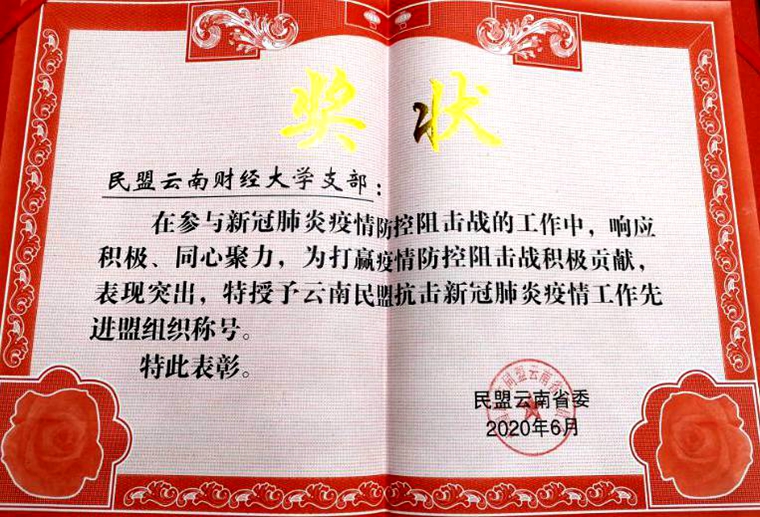 奖状
民盟云南财经大学支部：
在参与新冠肺炎疫情防控阻击战的工作中，响应
积极、同心聚力，为打赢疫情防控阻击战积极贡献，
表现突出，特授予云南民盟抗击新冠肺炎疫情工作先
进盟组织称号。
特此表彰。
民盟云南省委
2020年6月